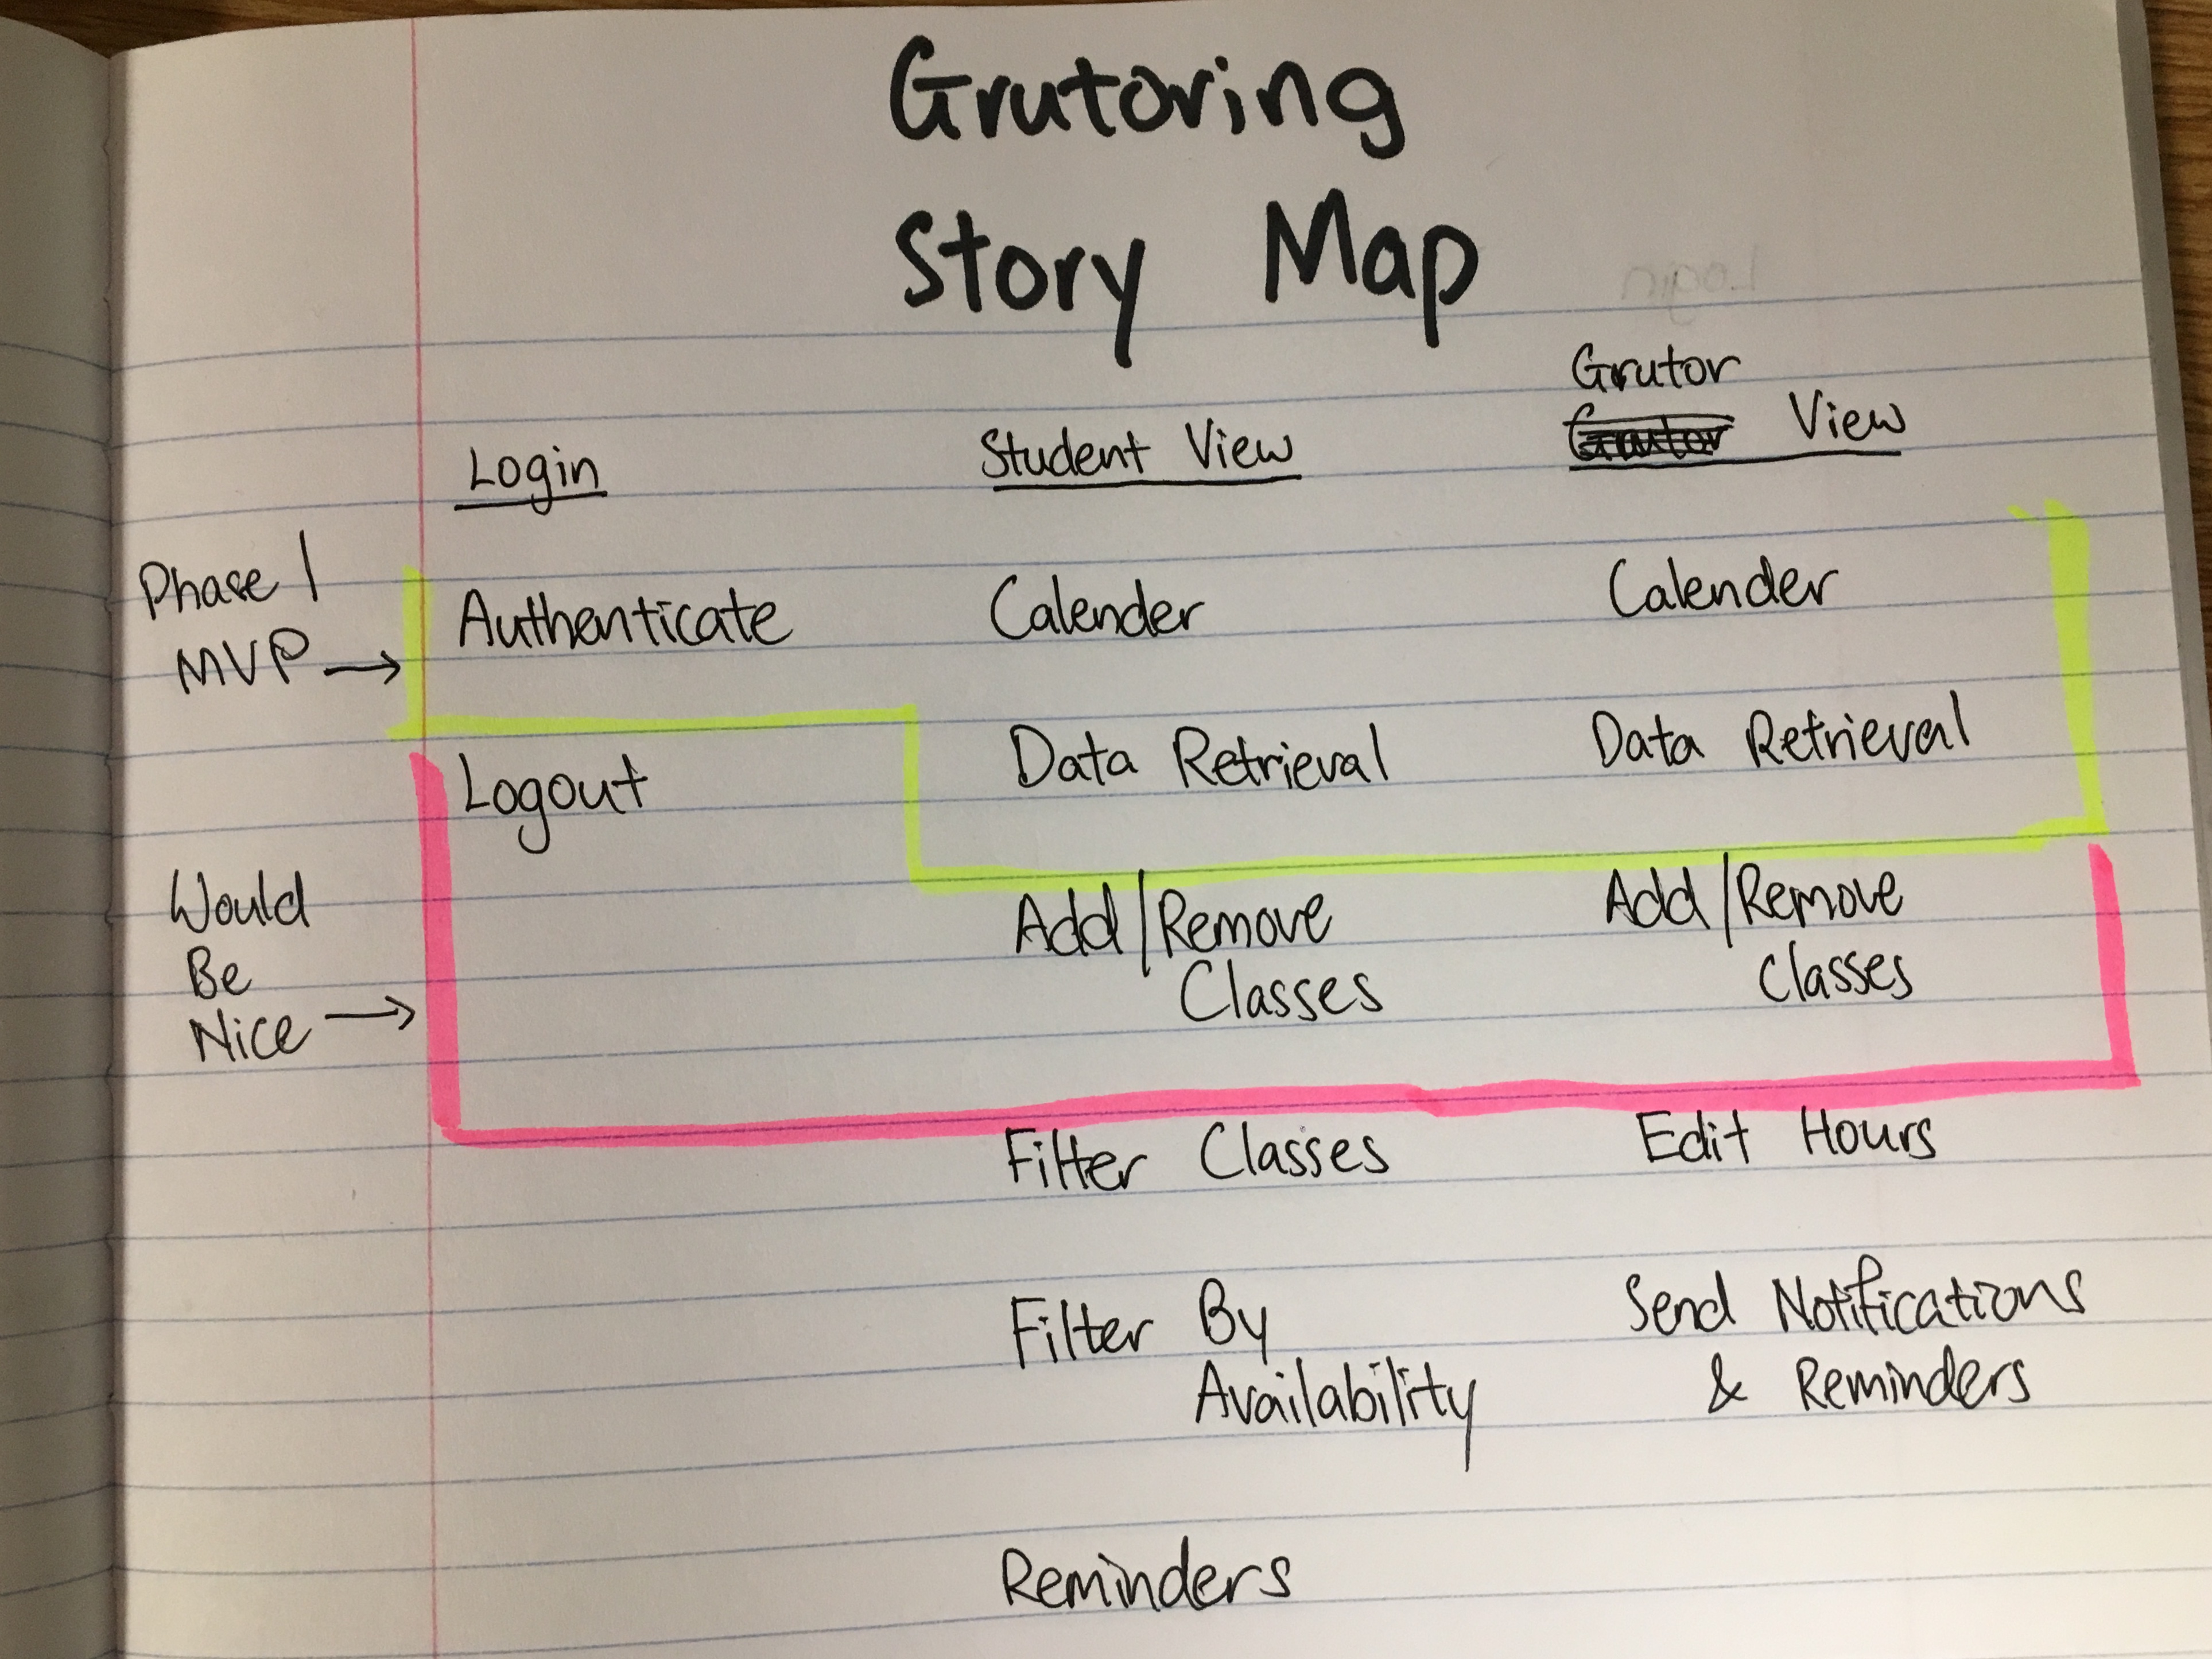 Grutoring
Story Map
Login
Student View
Grutor
Grutor View
Phase 1
MVP →
Authenticate
Calender
Calender
Logout
Data Retrieval
Data Retrieval
Would
Be
Nice →
Add/Remove
Classes
Add/Remove
Classes
Filter Classes
Edit Hours
Filter By
Availability
Send Notifications
& Reminders
Reminders